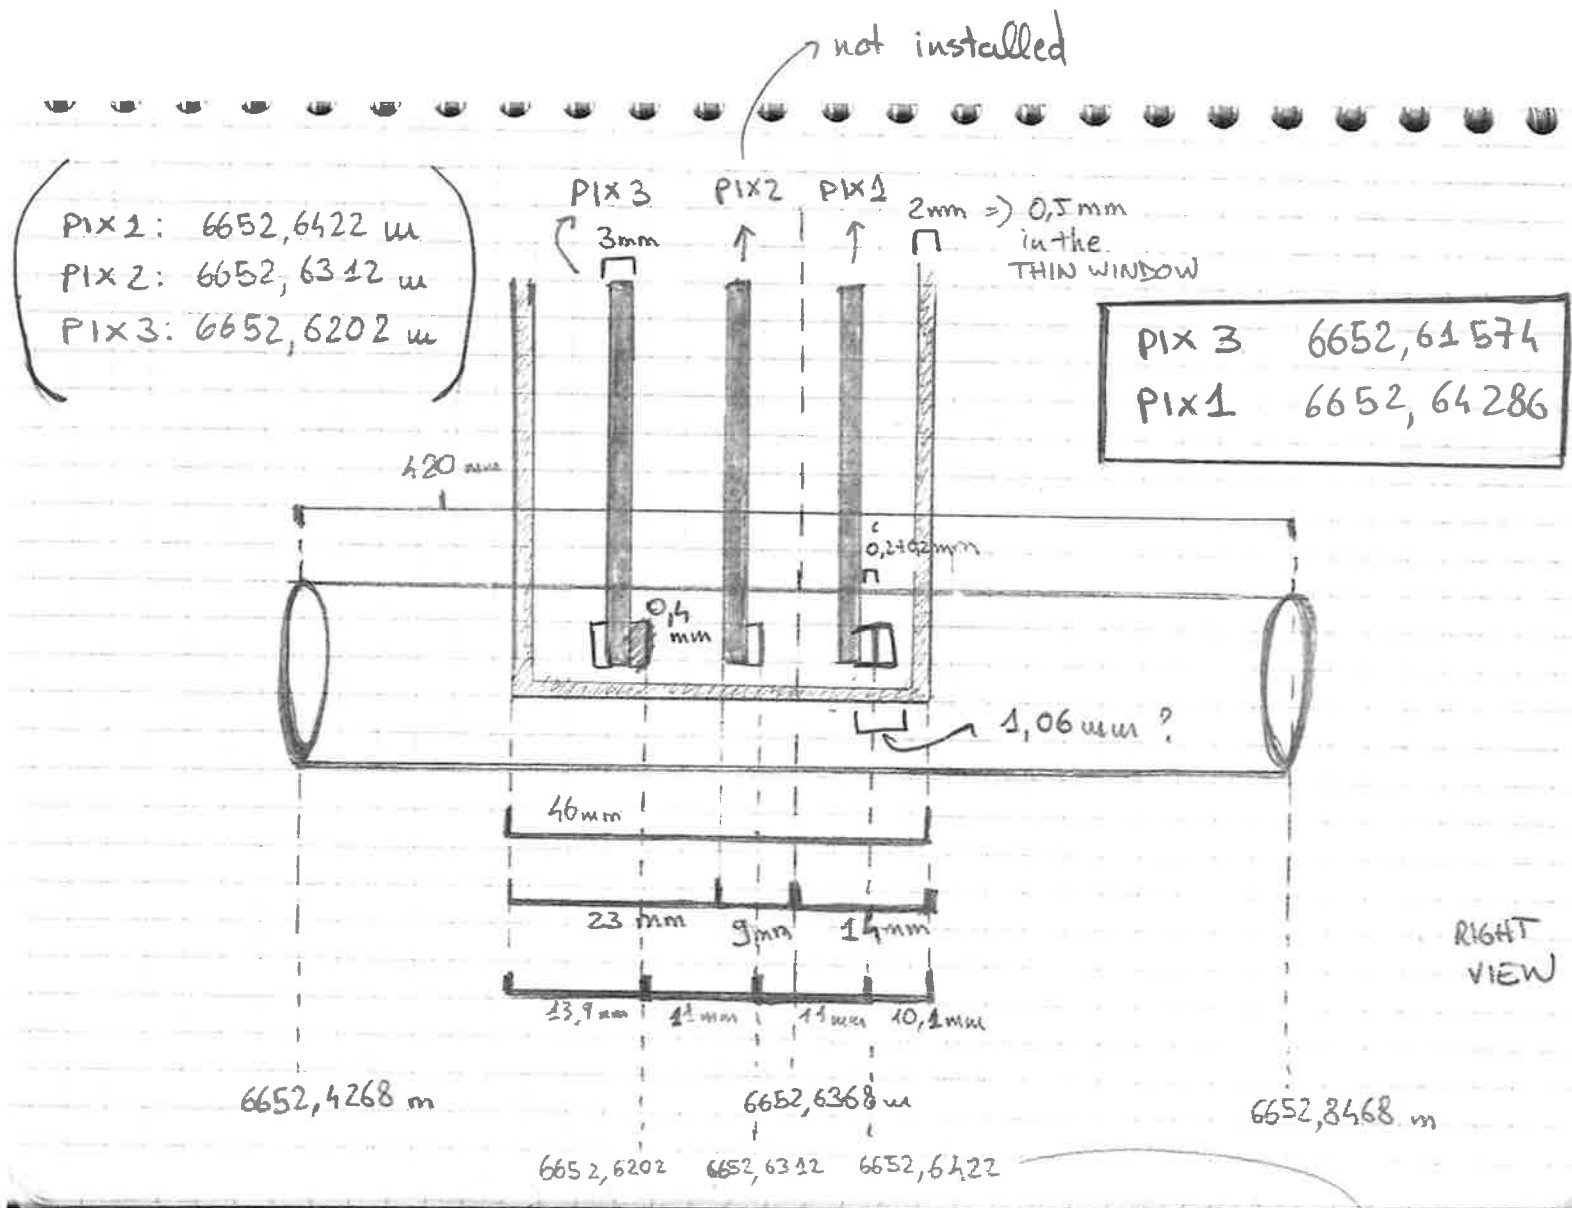 not installed
PIX 3 PIX2 PIX1
PIX1: 6652,6422 m
PIX2: 6652,6312 m
PIX3: 6652,6202 m
3mm
2mm => 0,5mm
in the
THIN WINDOW
PIX 3 6652,61574
PIX1 6652,64286
420 mm
0,2+0,2mm
0,4
mm
1,06mm ?
46mm
23 mm 9mm 14mm
RIGHT
VIEW
13,9mm 11mm 11mm 10,1mm
6652,4268 m 6652,6368 m 6652,8468 m
6652,6202 6652,6312 6652,6422